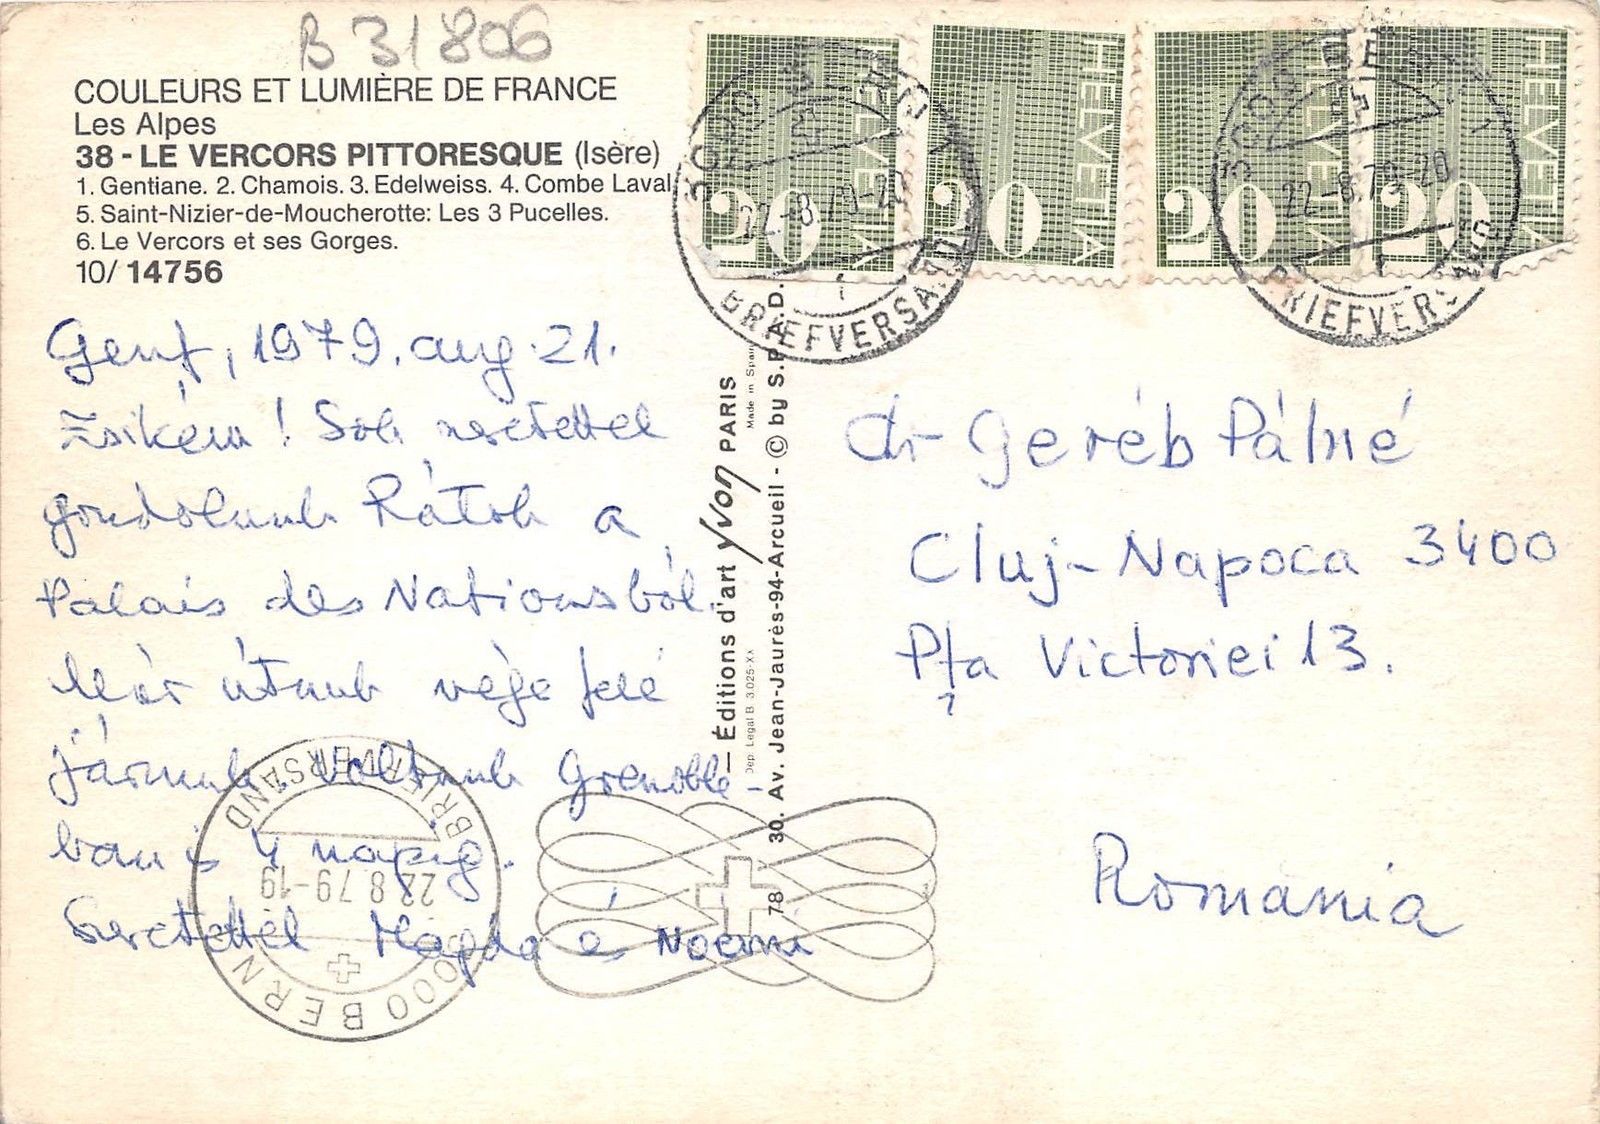 B 31806
COULEURS ET LUMIÈRE DE FRANCE
Les Alpes
38 - LE VERCORS PITTORESQUE (Isère)
1. Gentiane. 2. Chamois. 3. Edelweiss. 4. Combe Laval.
5. Saint-Nizier-de-Moucherotte: Les 3 Pucelles.
6. Le Vercors et ses Gorges.
10/ 14756
Genf, 1979. aug. 21.
Zsikém! Sok szeretettel
gondolunk Rátok a
Palais des Nationsból.
Már útunk vége felé
járunk. Voltunk Grenoble-
ban is 4 napig.
Szeretettel Magda és Noémi
Éditions d'art yvon PARIS
Made in Spain
Dep. Legal B 3.025-XX
30. Av. Jean-Jaurès-94-Arcueil - © by S.P.A.D.E.M.
78
HELVETIA 20
HELVETIA 20
HELVETIA 20
HELVETIA 20
3000 BERN 1
22.-8.79-20
BRIEFVERSAND
3000 BERN 1
22.-8.79-20
BRIEFVERSAND
dr Geréb Pálné
Cluj-Napoca 3400
Pţa Victoriei 13.
Romania
3000 BERN
22.8.79-19
BRIEFVERSAND